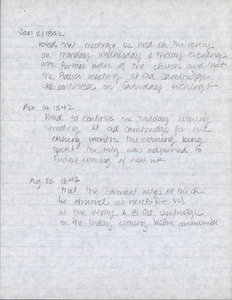 Jan 21 1842
Voted that meetings be held in the vestry
on Monday Wednesday & Friday evenings
former order of the church and that
the Prayer meeting at Old Cambridge
be continued on Saturday evenings
Apr 14 1842
Voted to continue the Tuesday evening
meeting at Old Cambridge for the
ensuing month the evening being
the mtg was adjourned to
Friday evening of next wk
Aug 26 1842
that the covenant mtgs of the ch
be observed as heretofore viz
at the vestry & @ Old Cambridge
on the Friday evening before communion